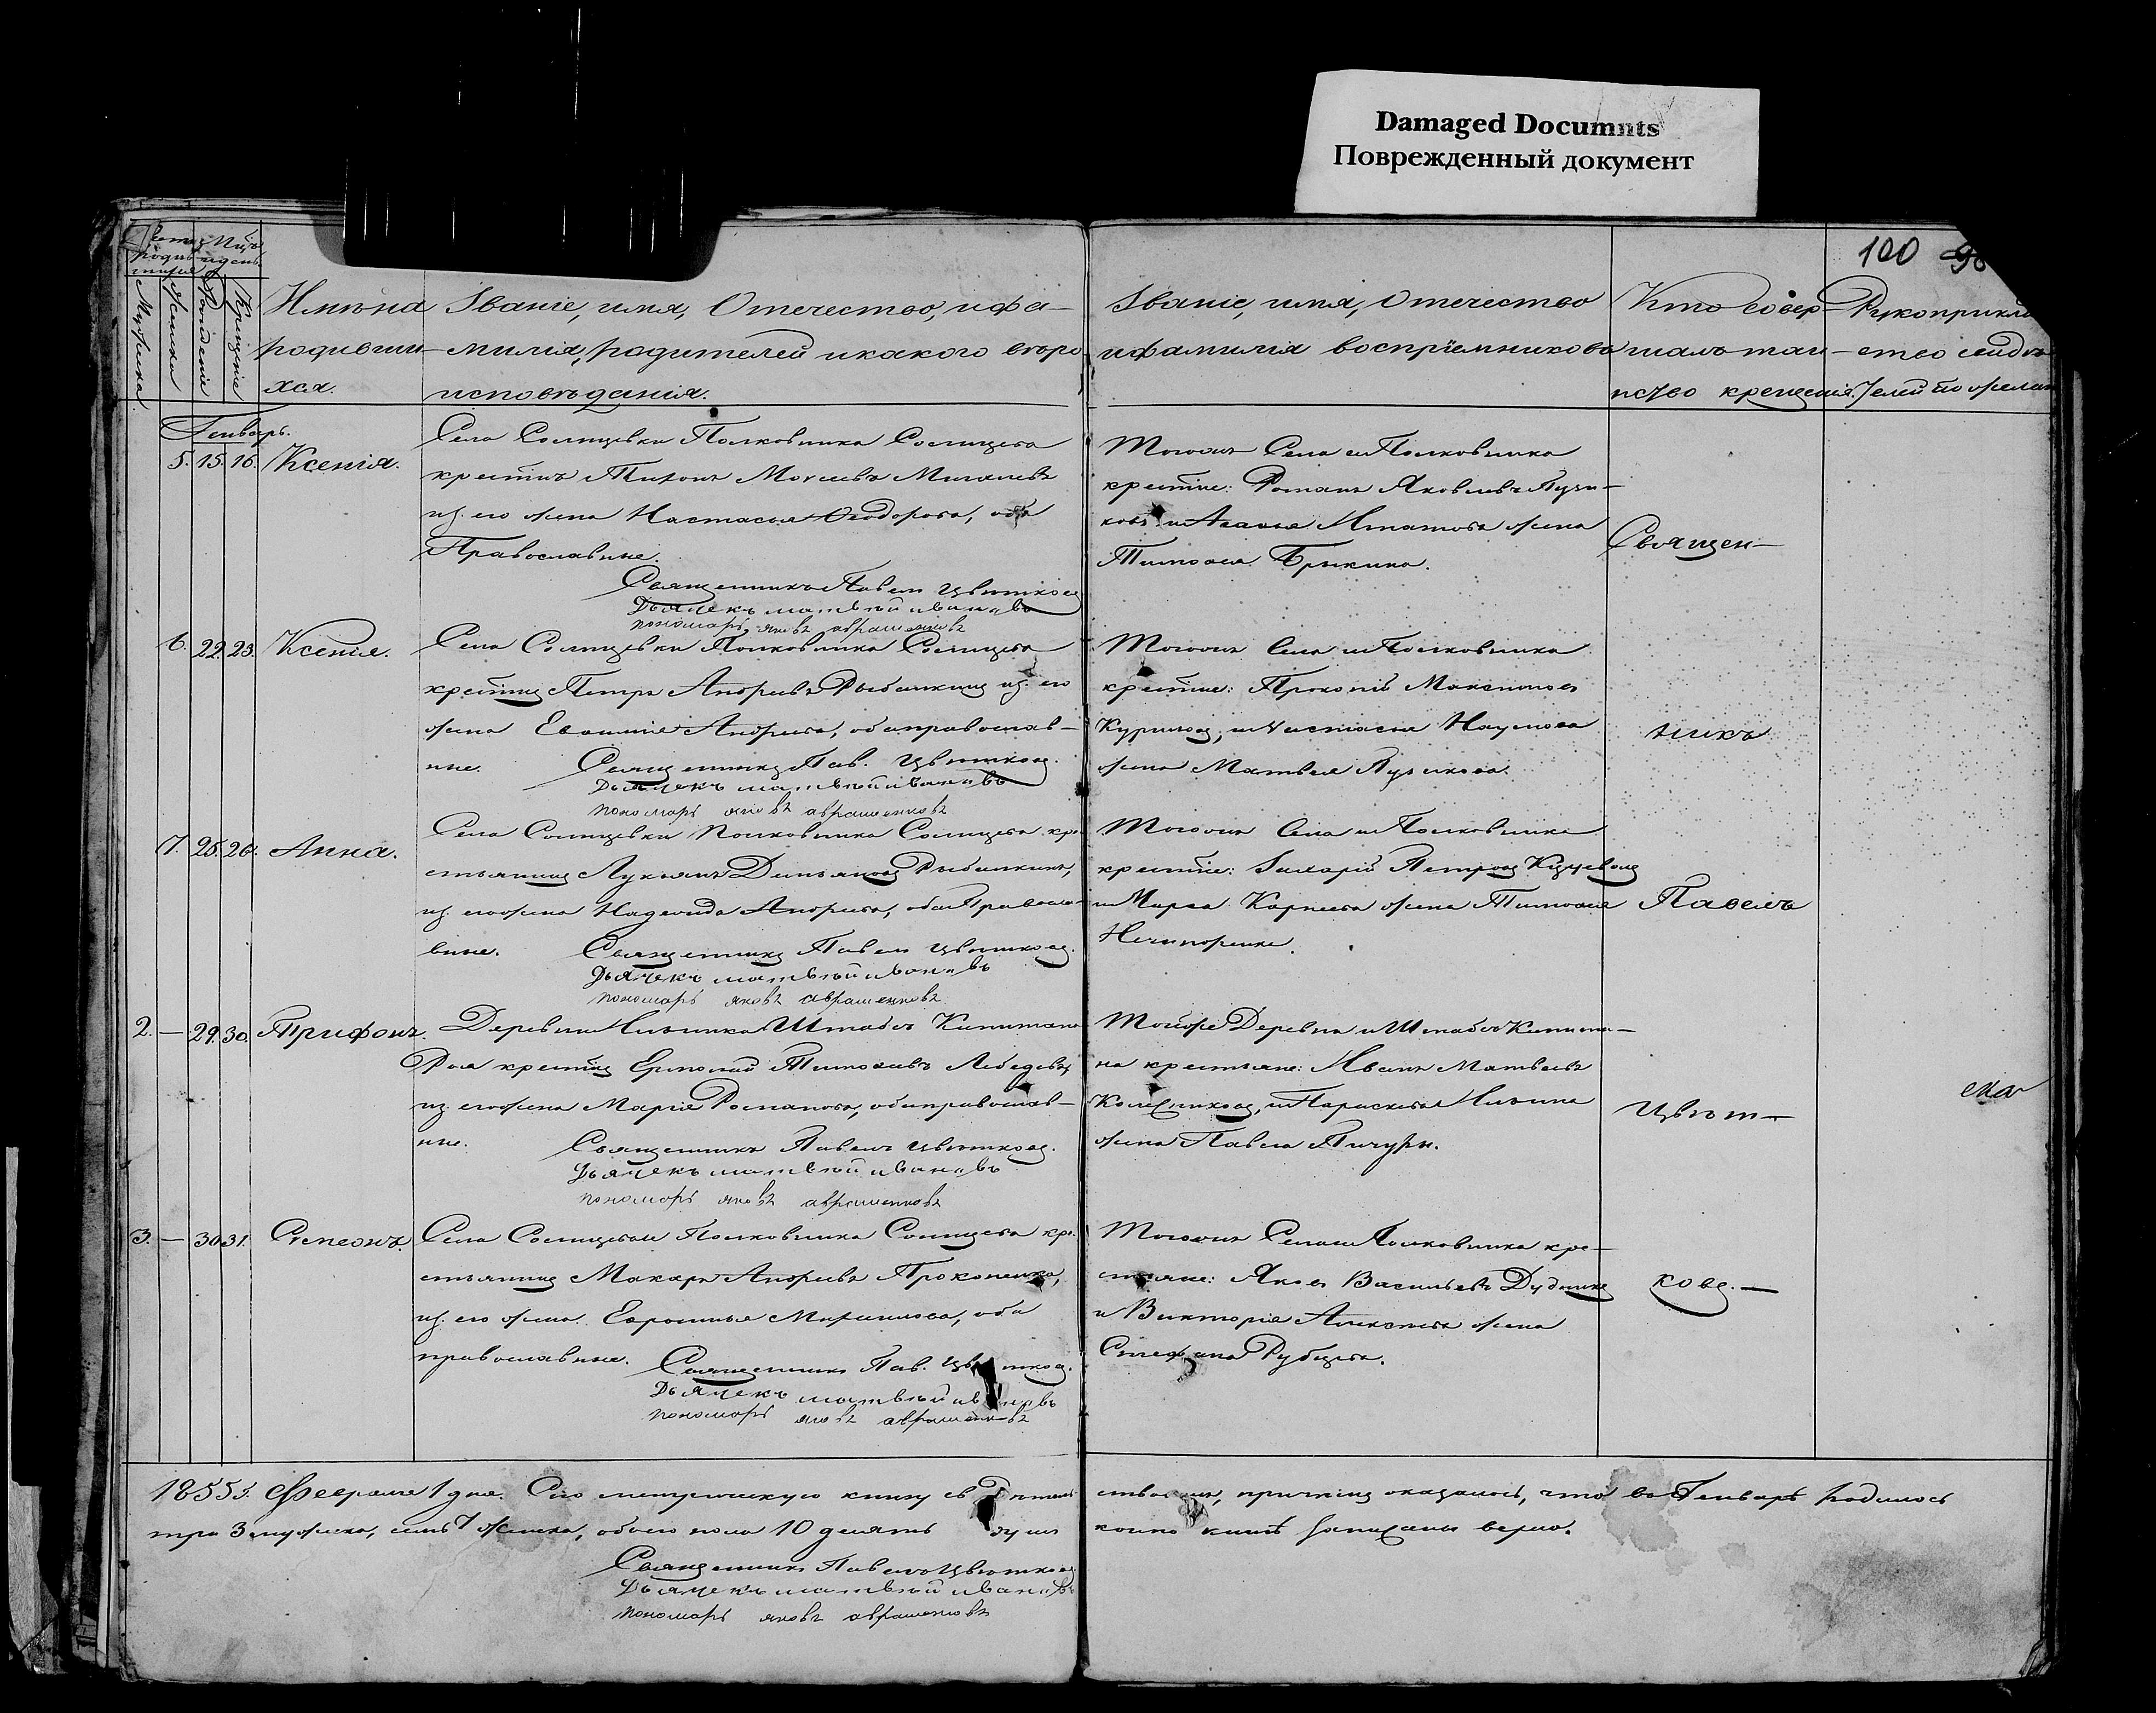 Damaged Documnts
Поврежденный документ
100
Имѣна
родивши-
хся.
Званіе, имя, Отечество, и фа-
милія, родителей и какого вѣро
исповѣданія.
Званіе, имя, Отечество
и фамилія воспріемниковъ
Кто совер-
шалъ таи-
нство крещенія.
Рукоприкла
ство свидѣ
телей по желан
Мужеска
Женска
Рожденіе
Крещеніе
Генварь.
5. 15. 16. Ксенія.
Села Солнцевки Полковника Солнцева
крестнъ Тихонъ Моисеевъ
из. его жена Настасья Ѳеодорова, оба
Православные.
Священникъ Павелъ Цвѣтковъ
Дьячекъ матвѣй ивановъ
пономарь яковъ авраменковъ
Тогожъ Села и Полковника
крестне: Романъ Яковлевъ Пузи-
ковъ и Агафья Игнатова жена
Тимофея
6. 22. 23. Ксенія.
Села Солнцевки Полковника Солнцева
крестнъ Петръ Андреевъ Рыбалкинъ из. его
жена Евфимія Андреева, оба православ-
ные.
Священникъ Пав. Цвѣтковъ.
Дьячекъ матвѣй ивановъ
пономарь яковъ авраменковъ
Тогожъ Села и Полковника
крестне: Прокопій Максимовъ
Куриловъ, и Настасья Наумова
жена Матвея Пузикова.
7. 25. 26. Анна.
Села Солнцевки Полковника Солнцева кре
стьянинъ Лукьянъ Демьяновъ Рыбалкинъ,
из. его жена Надежда Андреева, оба Правосла-
вные.
Священникъ Павелъ Цвѣтковъ.
Дьячекъ матвѣй ивановъ
пономарь яковъ авраменковъ
Тогожъ Села и Полковника
крестне: Захарій Петровъ
и Марѳа Карпеева жена Тимофея
Нечипоренка.
2. — 29. 30. Трифонъ.
Деревни Ильинка Штабсъ Капитана
Роя крестнъ Ермолай Тимофеевъ Лебедевъ,
из. его жена Марія Романова, оба православ-
ные.
Священникъ Павелъ Цвѣтковъ.
Дьячекъ матвѣй ивановъ
пономарь яковъ авраменковъ
Тойже Деревни и Штабсъ Капита-
на крестьяне: Иванъ Матвеевъ
Колесниковъ, и Параскева Ильина
жена Павла
3. — 30. 31. Симеонъ.
Села Солнцевки Полковника Солнцева кре-
стьянинъ Макаръ Андреевъ Прокопенко,
из. его жена Евфросинья оба
православные.
Священникъ Пав. Цвѣтковъ.
Дьячекъ матвѣй ивановъ
пономарь яковъ авраменковъ
Тогожъ Села и Полковника кре-
стьяне: Яковъ Васильевъ Дудника
и Викторія Алексѣева жена
Стефана Рубцева.
Священ-
никъ
Павелъ
Цвѣт-
ковъ. —
1855 г. Февраля 1 дня. Сію метрическую книгу св
ствовали, причемъ оказалось, что во Генварѣ родилось
три 3 мужеска, семь 7 женска, обоего пола 10 десять душъ
коихъ книгѣ записаны верно.
Священникъ Павелъ Цвѣтковъ
Дьячекъ матвѣй ивановъ
пономарь яковъ авраменковъ